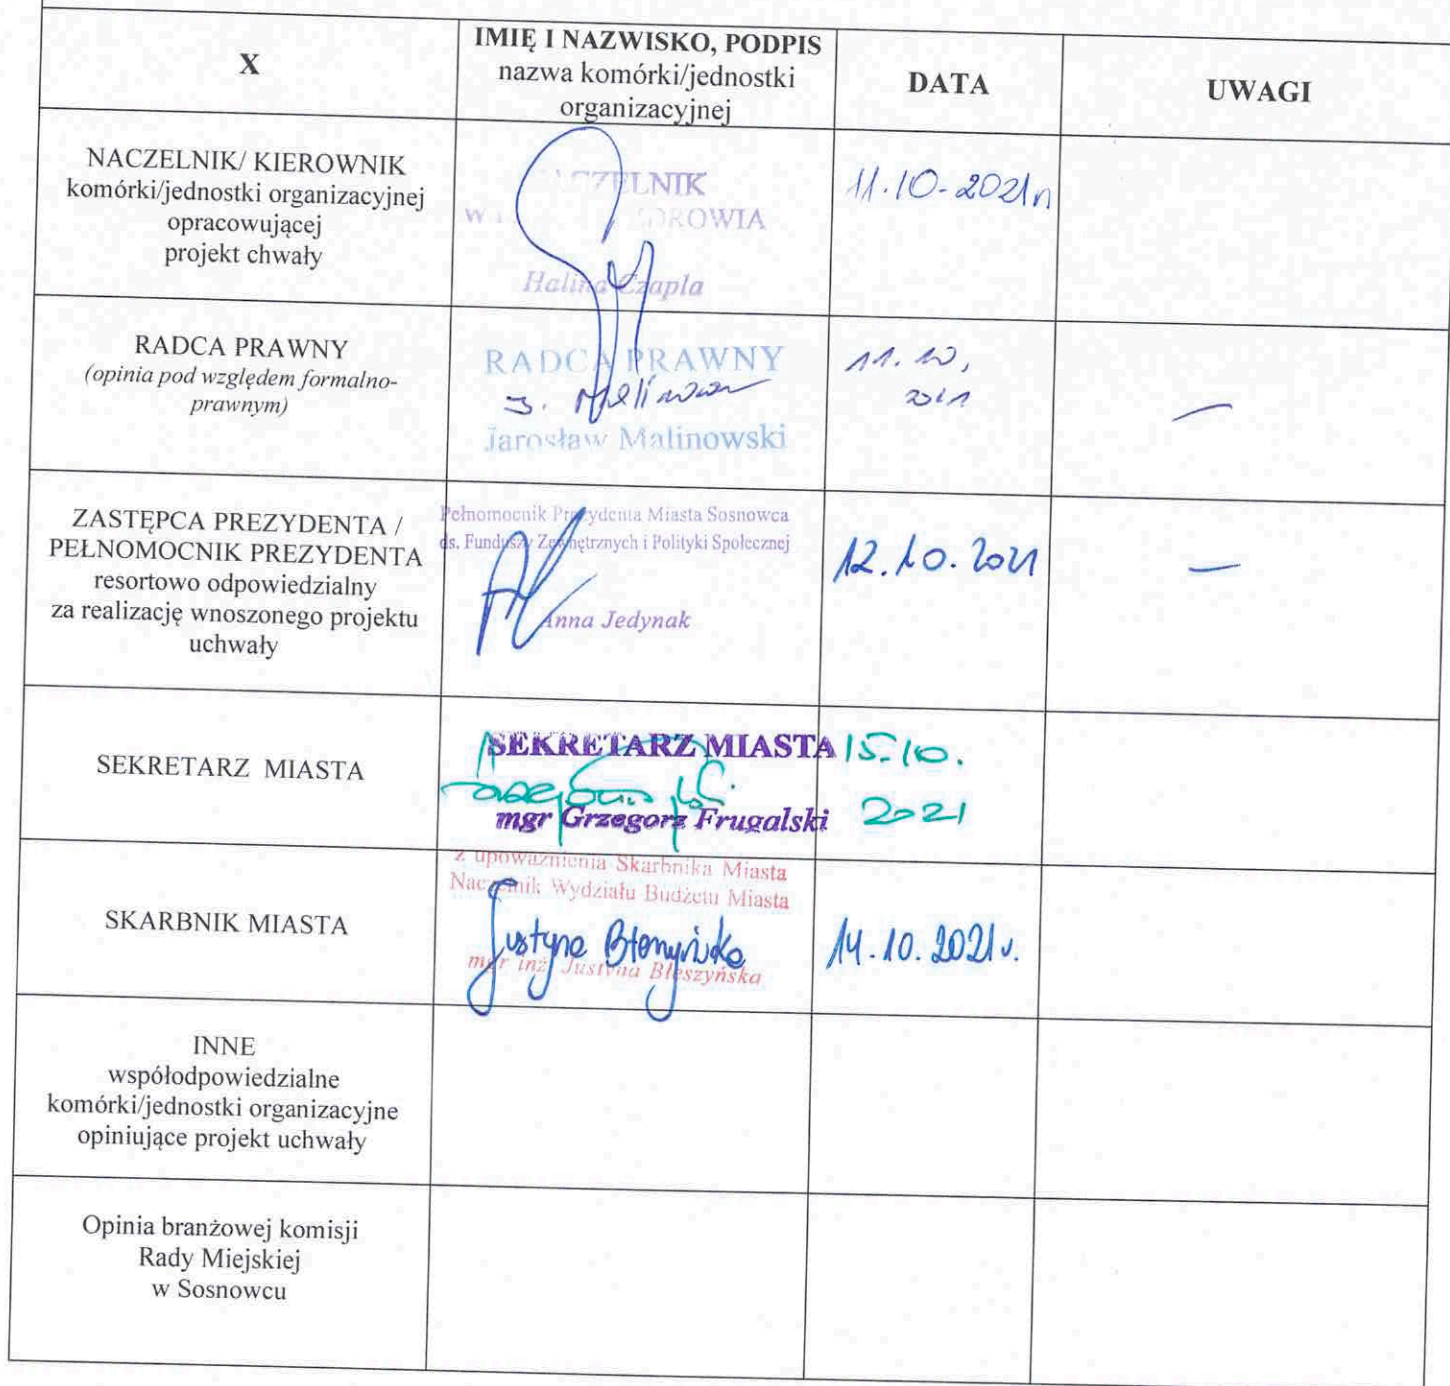 X
IMIĘ I NAZWISKO, PODPIS
nazwa komórki/jednostki
organizacyjnej
DATA
UWAGI
NACZELNIK/ KIEROWNIK
komórki/jednostki organizacyjnej
opracowującej
projekt chwały
CZELNIK
ZDROWIA
Halina Czapla
11.10-2021r
RADCA PRAWNY
(opinia pod względem formalno-
prawnym)
RADCA PRAWNY
J. Malinowski
Jarosław Malinowski
11.10,
2021
—
ZASTĘPCA PREZYDENTA /
PEŁNOMOCNIK PREZYDENTA
resortowo odpowiedzialny
za realizację wnoszonego projektu
uchwały
Pełnomocnik Prezydenta Miasta Sosnowca
ds. Funduszy Zewnętrznych i Polityki Społecznej
Anna Jedynak
12.10.2021
—
SEKRETARZ MIASTA
SEKRETARZ MIASTA
mgr Grzegorz Frugalski
15.10.
2021
SKARBNIK MIASTA
z upoważnienia Skarbnika Miasta
Naczelnik Wydziału Budżetu Miasta
Justyna Błeszyńska
mgr inż. Justyna Błeszyńska
14.10.2021r.
INNE
współodpowiedzialne
komórki/jednostki organizacyjne
opiniujące projekt uchwały
Opinia branżowej komisji
Rady Miejskiej
w Sosnowcu